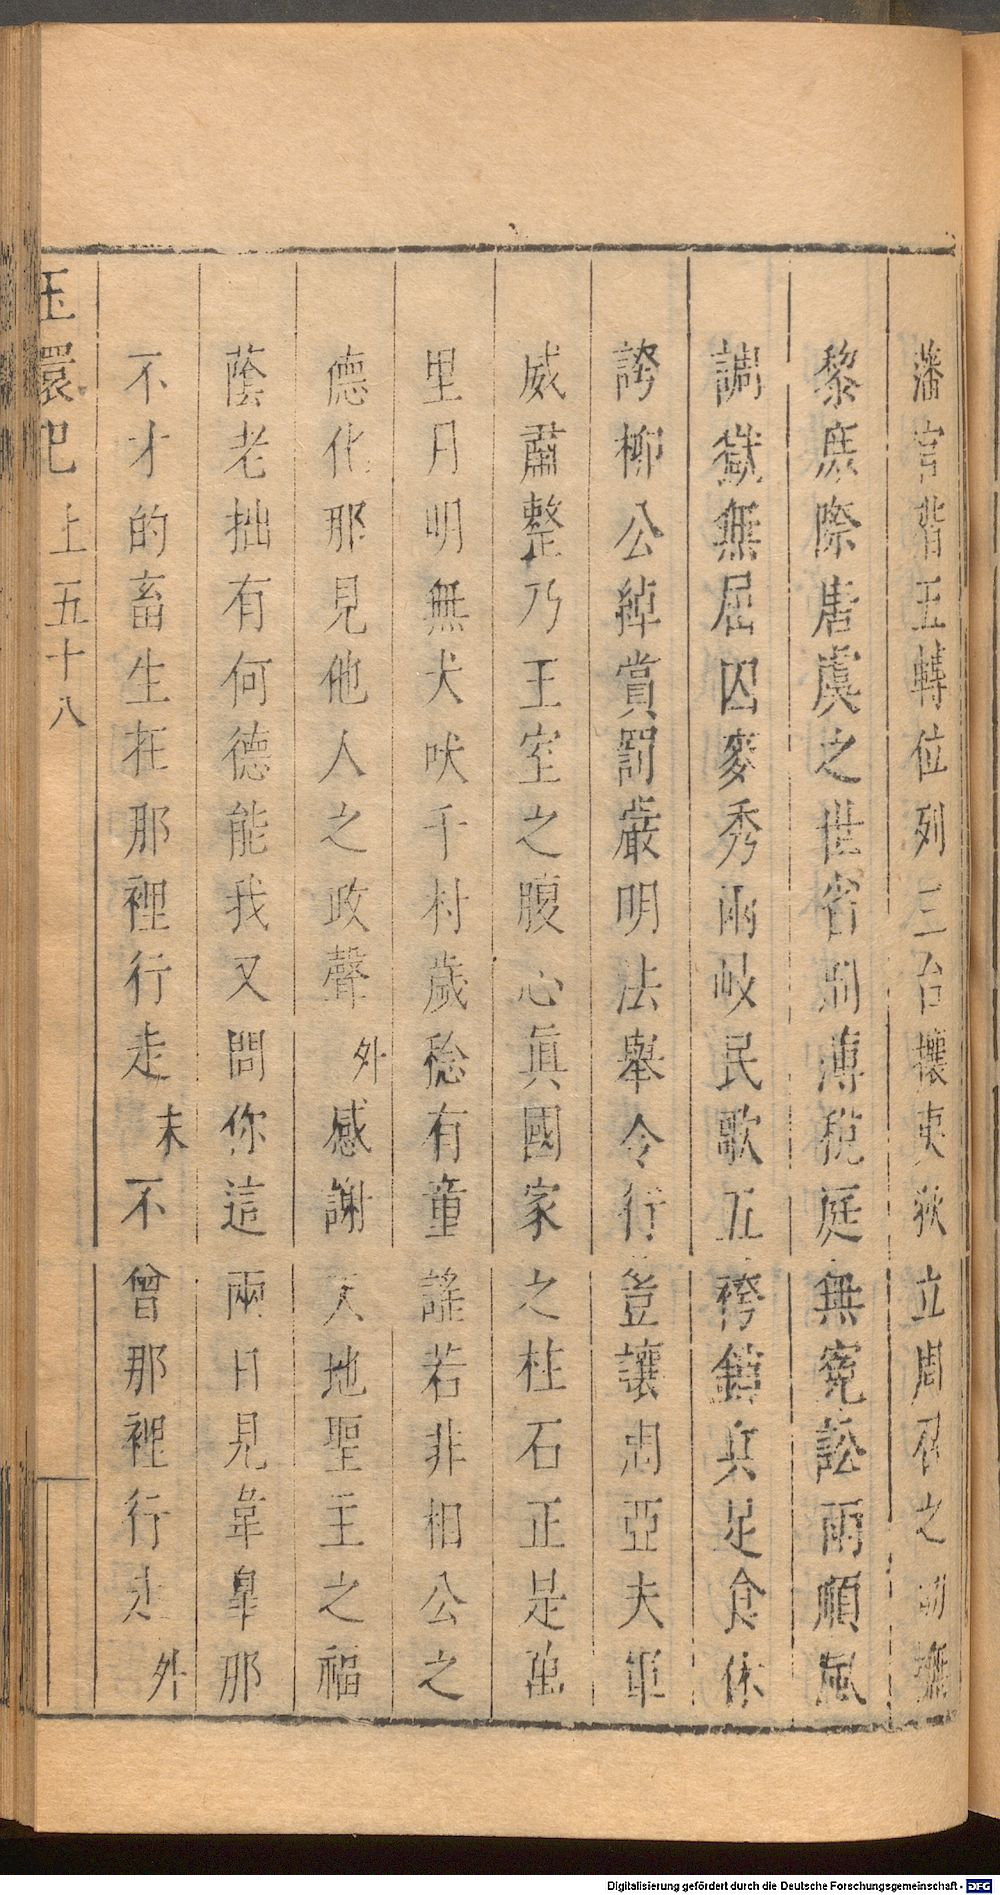 藩官階五轉位列三台攘夷狄立周召之勛撫
黎庶際唐虞之世省刑薄稅庭無寃訟雨順風
調獄無屈囚麥秀兩岐民歌五袴鎧兵足食休
誇柳公綽賞罰嚴明法舉令行豈讓周亞夫軍
威肅整乃王室之腹心真國家之柱石正是萬
里月明無犬吠千村歲稔有童謠若非相公之
德化那見他人之政聲外感謝天地聖主之福
蔭老拙有何德能我又問你這兩日見韋臯那
不才的畜生在那裡行走末不曾那裡行走外
玉環記上五十八
Digitalisierung gefördert durch die Deutsche Forschungsgemeinschaft - DFG